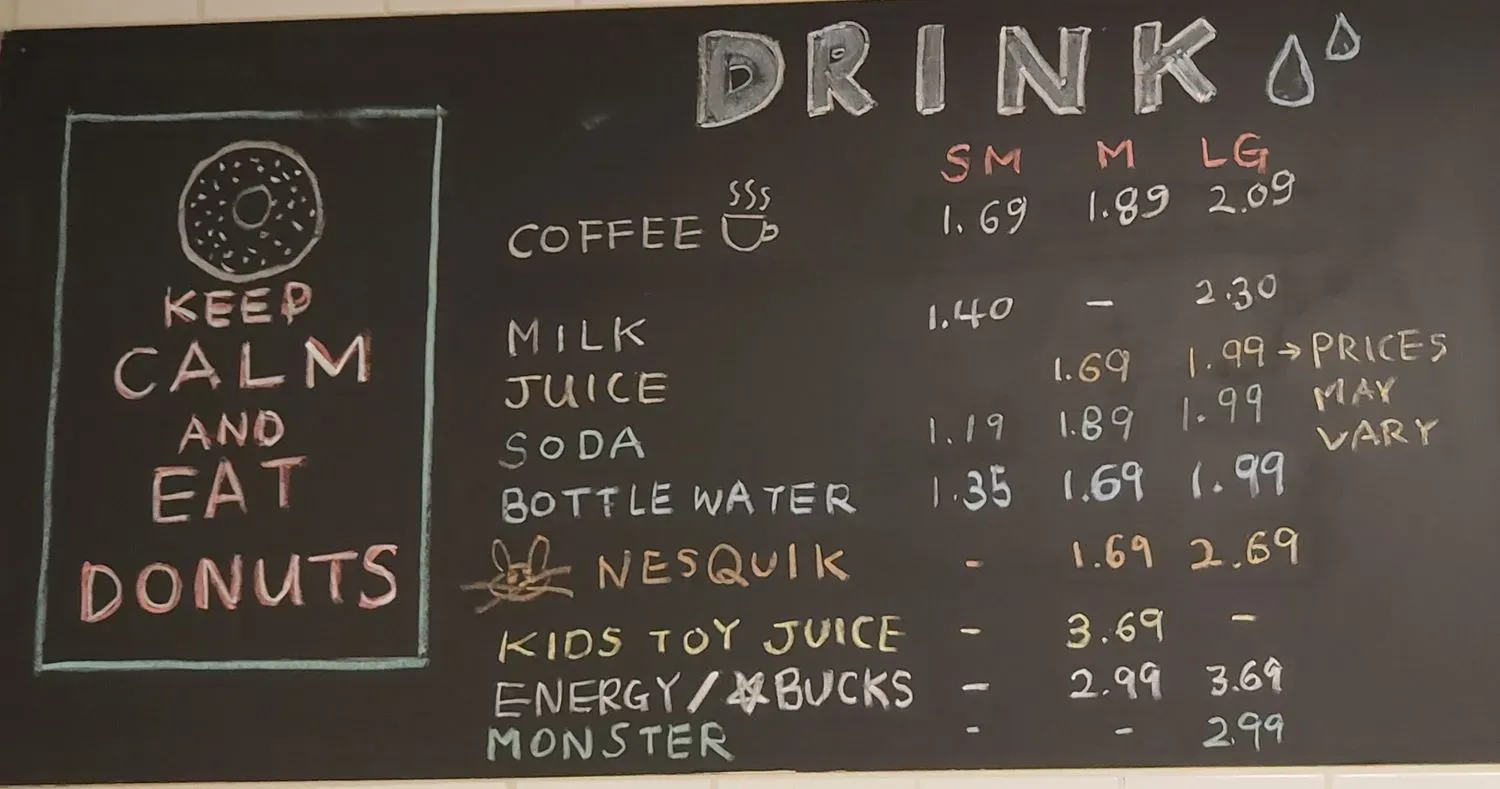 DRINK
KEEP
CALM
AND
EAT
DONUTS
SM M LG
COFFEE 1.69 1.89 2.09
MILK 1.40 - 2.30
JUICE 1.69 1.99 → PRICES
MAY
VARY
SODA 1.19 1.89 1.99
BOTTLE WATER 1.35 1.69 1.99
NESQUIK - 1.69 2.69
KIDS TOY JUICE - 3.69 -
ENERGY/☆BUCKS - 2.99 3.69
MONSTER - - 2.99